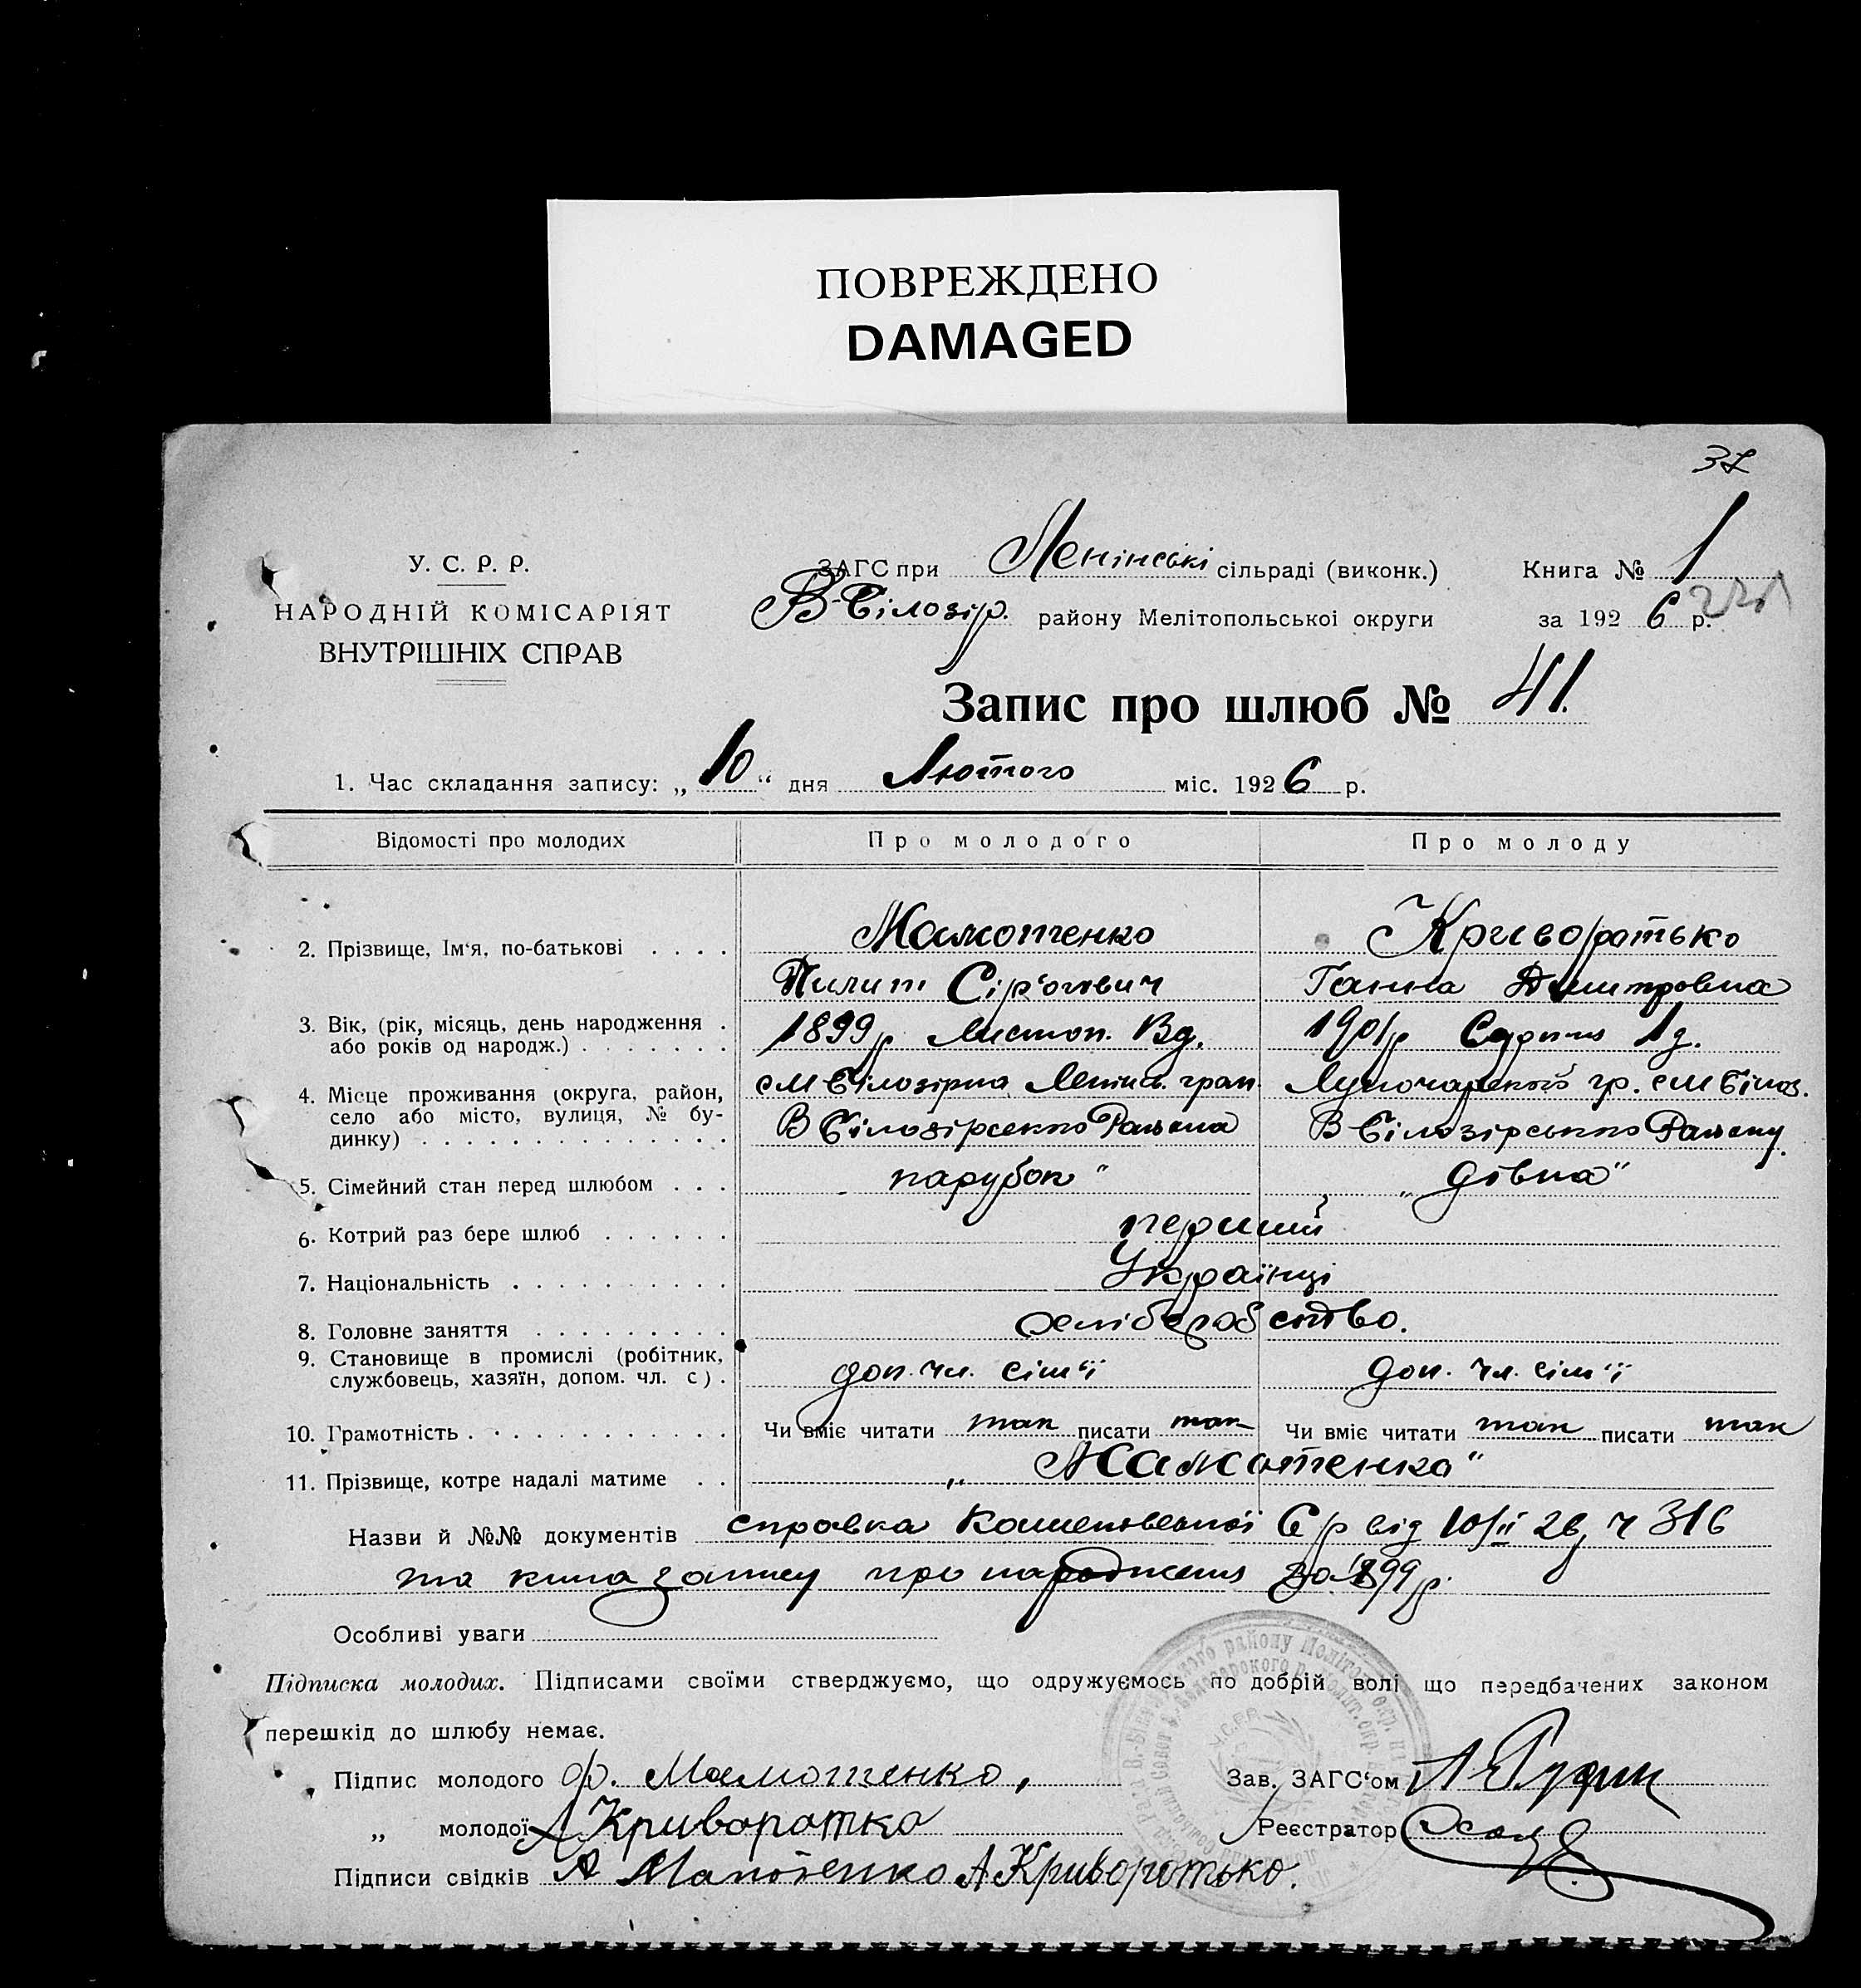 ПОВРЕЖДЕНО
DAMAGED
37
У. С. Р. Р.
НАРОДНІЙ КОМІСАРІЯТ
ВНУТРІШНІХ СПРАВ
ЗАГС при Ленінські сільраді (виконк.)
В-Білозір. району Мелітопольської округи
Книга № 1
за 1926 р.
Запис про шлюб № 41.
1. Час складання запису: „10“ дня Лютого міс. 1926 р.
Відомості про молодих Про молодого Про молоду
2. Прізвище, Ім'я, по-батькові . . . . Мамотенко Криворотько
Пилип Сір'огович Ганна Димитровна
3. Вік, (рік, місяць, день народження . 1899р Листоп. 3д. 1901р Серпня 1д.
або років од народж.) . . . . . . .
4. Місце проживання (округа, район, см Білозірка Ленінс. гром Луночарської гр. см Білоз.
село або місто, вулиця, № бу- В Білозірсько Района В-Білозірсько Району
динку) . . . . . . . . . . . . . .
5. Сімейний стан перед шлюбом . . . парубок" „дівка"
6. Котрий раз бере шлюб . . . . . . перший
7. Національність . . . . . . . . . . Українці
8. Головне заняття . . . . . . . . . хліборобство.
9. Становище в промислі (робітник,
службовець, хазяїн, допом. чл. с) . доп. чл. сім'ї доп. чл. сім'ї
10. Грамотність . . . . . . . . . . . . Чи вміє читати так писати так Чи вміє читати так писати так
11. Прізвище, котре надалі матиме . . „Мамотенко"
Назви й №№ документів справка від 10/II 26, ч 316
та книга запису про народження за 1899р.
Особливі уваги
Підписка молодих. Підписами своїми стверджуємо, що одружуємось по добрій волі що передбачених законом
перешкід до шлюбу немає.
Підпис молодого Ф. Мамотенко, Зав. ЗАГС'ом
„ молодої А Криворотко Реєстратор
Підписи свідків А Мамотенко А Криворотько.